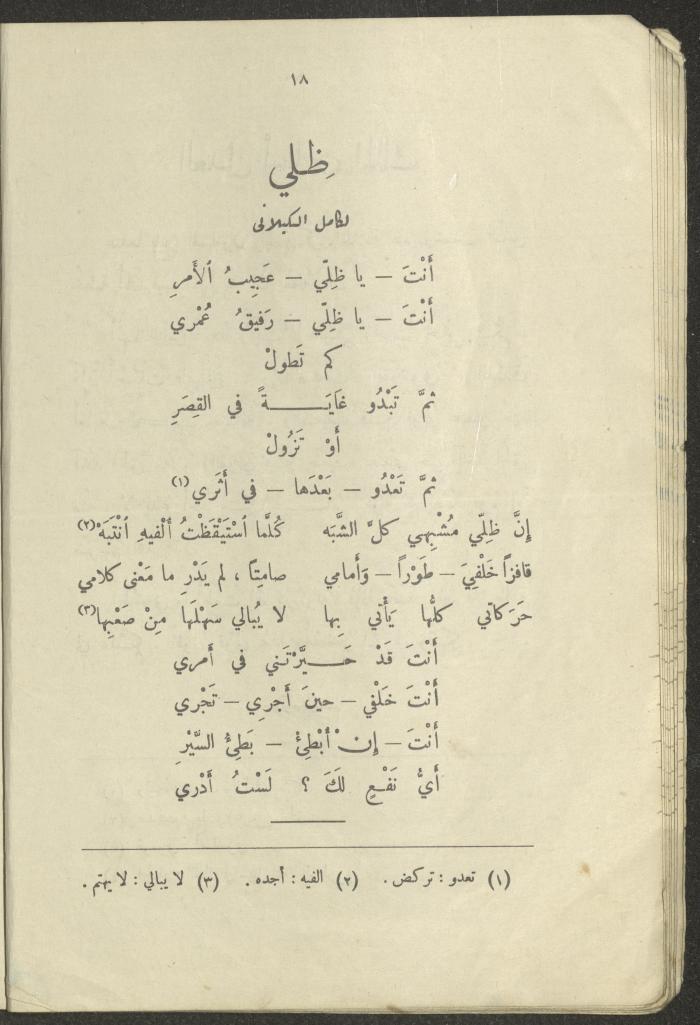 ١٨
ظِلي
لكامل الكيلانى
أَنْتَ — يا ظِلّي — عَجِيبُ ٱلأَمرِ
أَنْتَ — يا ظِلّي — رَفيقُ عُمْري
كم تَطولْ
ثمَّ تَبْدُو غَايَةً في القِصَرِ
أَوْ تَزُولْ
ثمَّ تَعْدُو — بَعْدَها — في أَثَري (١)
إِنَّ ظِلِّي مُشْبِهي كلَّ الشَّبَه كُلَّما ٱسْتَيْقَظْتُ أُلْفيهِ ٱنْتَبَهْ (٢)
قافزاً خَلْفِيَ — طَوْراً — وَأَمامي صامِتًا ، لم يَدْرِ ما مَعْنى كلامي
حَرَكاتي كلُّها يَأْتي بِها لا يُبالي سَهْلَها مِنْ صَعْبِها (٣)
أَنْتَ قَدْ حَيَّرْتَني في أَمري
أَنْتَ خَلْفي — حينَ أَجْرِي — تَجْري
أَنْتَ — إِنْ أُبْطِئْ — بَطِئُ السَّيْرِ
أَيُّ نَفْعٍ لَكَ ؟ لَسْتُ أَدْري
(١) تعدو : تركض . (٢) الفيه : أجده . (٣) لا يبالي : لا يهتم .